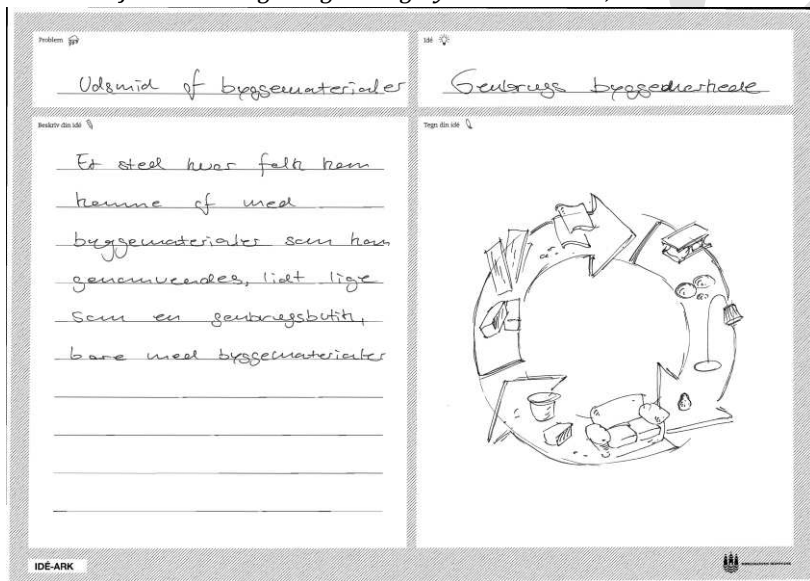 Problem
Udsmid af byggematerialer
Idé
Genbrugs
Beskriv din idé
Et sted hvor folk kan
komme af med
byggematerialer som kan
genanvendes, lidt lige
som en genbrugsbutik,
bare med byggematerialer
Tegn din idé
IDÉ-ARK